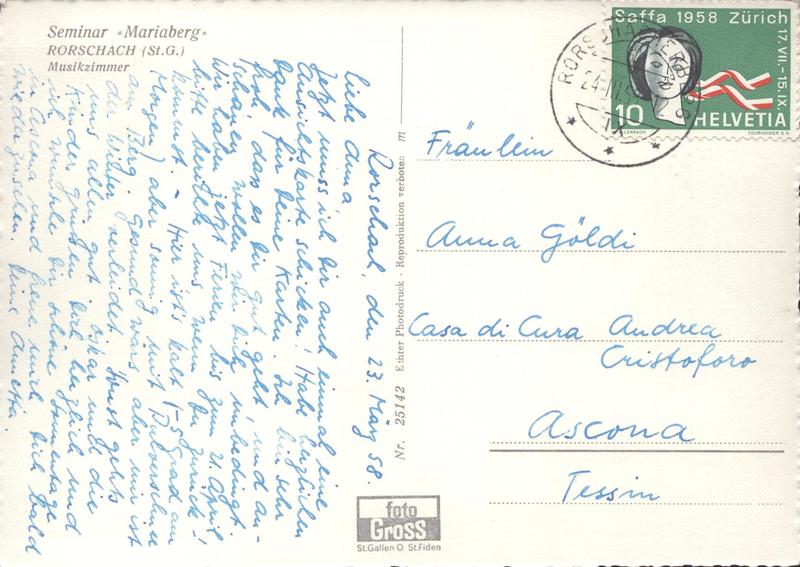 Seminar «Mariaberg»
RORSCHACH (St.G.)
Musikzimmer
Saffa 1958 Zürich
17.VII.-15.IX.
10
HELVETIA
COURVOISIER S.A.
RORSCHACH
Fräulein
Anna Göldi
Casa di Cura Andrea
Cristoforo
Ascona
Tessin
Nr. 25142 Echter Photodruck - Reproduktion verboten m
foto
Gross
St.Gallen O St.Fiden
Rorschach, den 23. März 58.
Liebe Anna
Jetzt muss ich Dir auch einmal eine
Ansichtskarte schicken! Habe herzlichen
Dank für Deine Karten. Ich bin sehr
froh, dass es Dir gut geht, und an-
schauen wollen wir Dich unbedingt.
Wir haben jetzt Ferien bis zum 21. April!
bitte berichte uns wenn Du zurück
kommst. - Hier ist's kalt (-5 Grad am
Morgen) aber sonnig, mit Pulverschnee
am Berg. Gesund wär's aber mir ist
der Winter verleidet. Sonst geht's
uns allen gut. Oskar und die
Kinder grüssen Dich herzlich und
ich wünsche Dir schöne Sonnentage
in Ascona und freue mich Dich bald
wiederzusehen. Deine